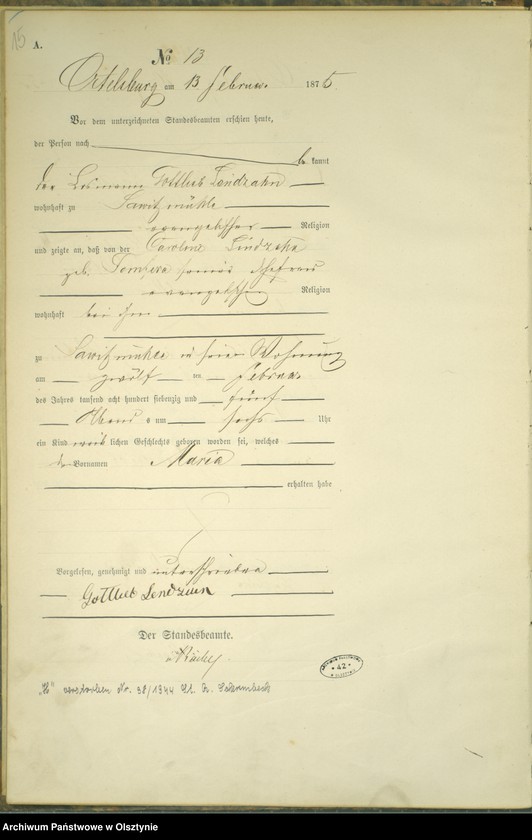 15
A.
No 13
Ortelsburg am 13 Februar 1875.
Vor dem unterzeichneten Standesbeamten erschien heute,
der Person nach
be kannt
der Gottlieb Lendzahn
wohnhaft zu Sawitzmühle
evangelischer Religion
und zeigte an, daß von der Caroline
geb. seiner Ehefrau
evangelischen Religion
wohnhaft bei ihm
zu Sawitzmühle in seiner Wohnung
am zwölf ten Februar
des Jahres tausend acht hundert siebenzig und fünf
Abend s um sechs Uhr
ein Kind weib lichen Geschlechts geboren worden sei, welches
den Vornamen Maria
erhalten habe
Vorgelesen, genehmigt und unterschrieben
Gottlieb Lendzian
Der Standesbeamte.
"H" verstorben Nr. 38/1944 St. A.
ARCHIWUM PAŃSTWOWE
* 42 *
W OLSZTYNIE
Archiwum Państwowe w Olsztynie